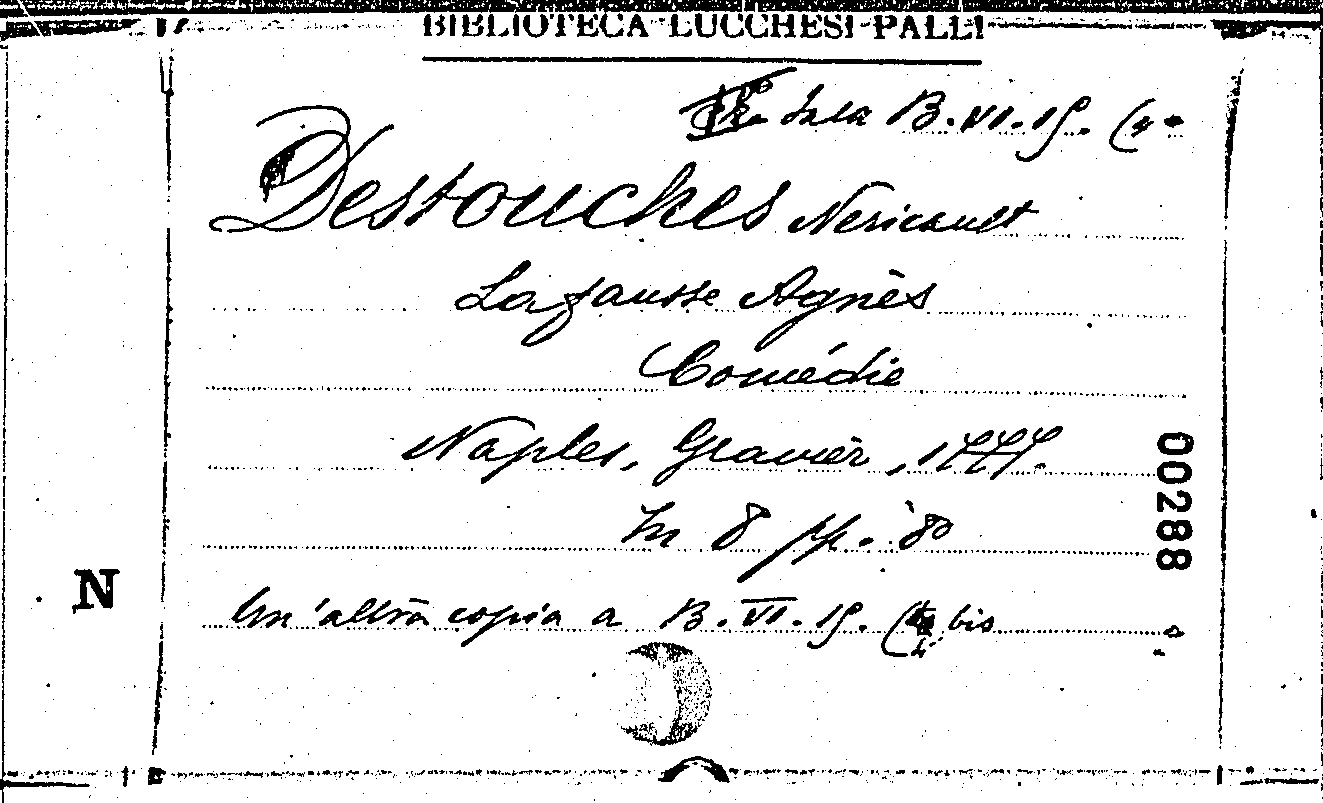 BIBLIOTECA LUCCHESI-PALLI
Sala B. VI. 19. (4
Destouches Nericault
La fausse Agnès
Comédie
Naples, Gravier, 1777.
In 8 pp. 80
Un'altra copia a B. VI. 19. ( bis
00288
N